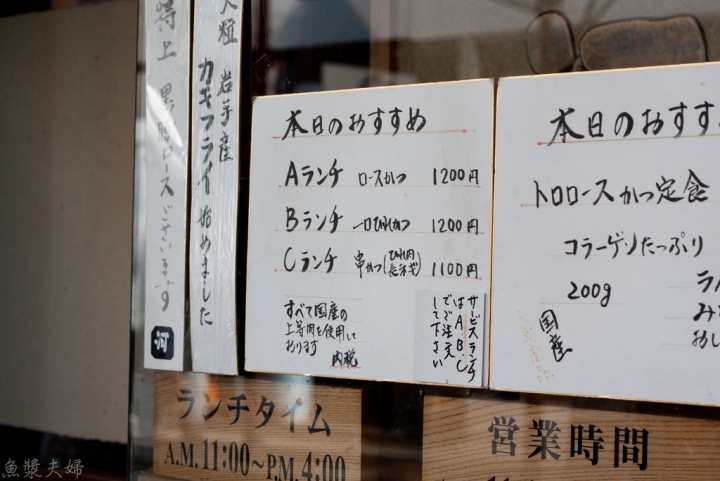 特上 黒豚ロースございます
河
大粒 岩手産 カキフライ始めました
本日のおすすめ
Aランチ ロースかつ 1200円
Bランチ 一口ひれかつ 1200円
Cランチ 串かつ(ひれ肉 長ネギ) 1100円
すべて国産の
上等肉を使用して
おります
内税
サービスランチ
はA.B.C
でご注文
して下さい
本日のおすす
トロロースかつ定食
コラーゲンたっぷり
200g
国産
ランチタイム
A.M.11:00~P.M.4:00
営業時間
魚漿夫婦